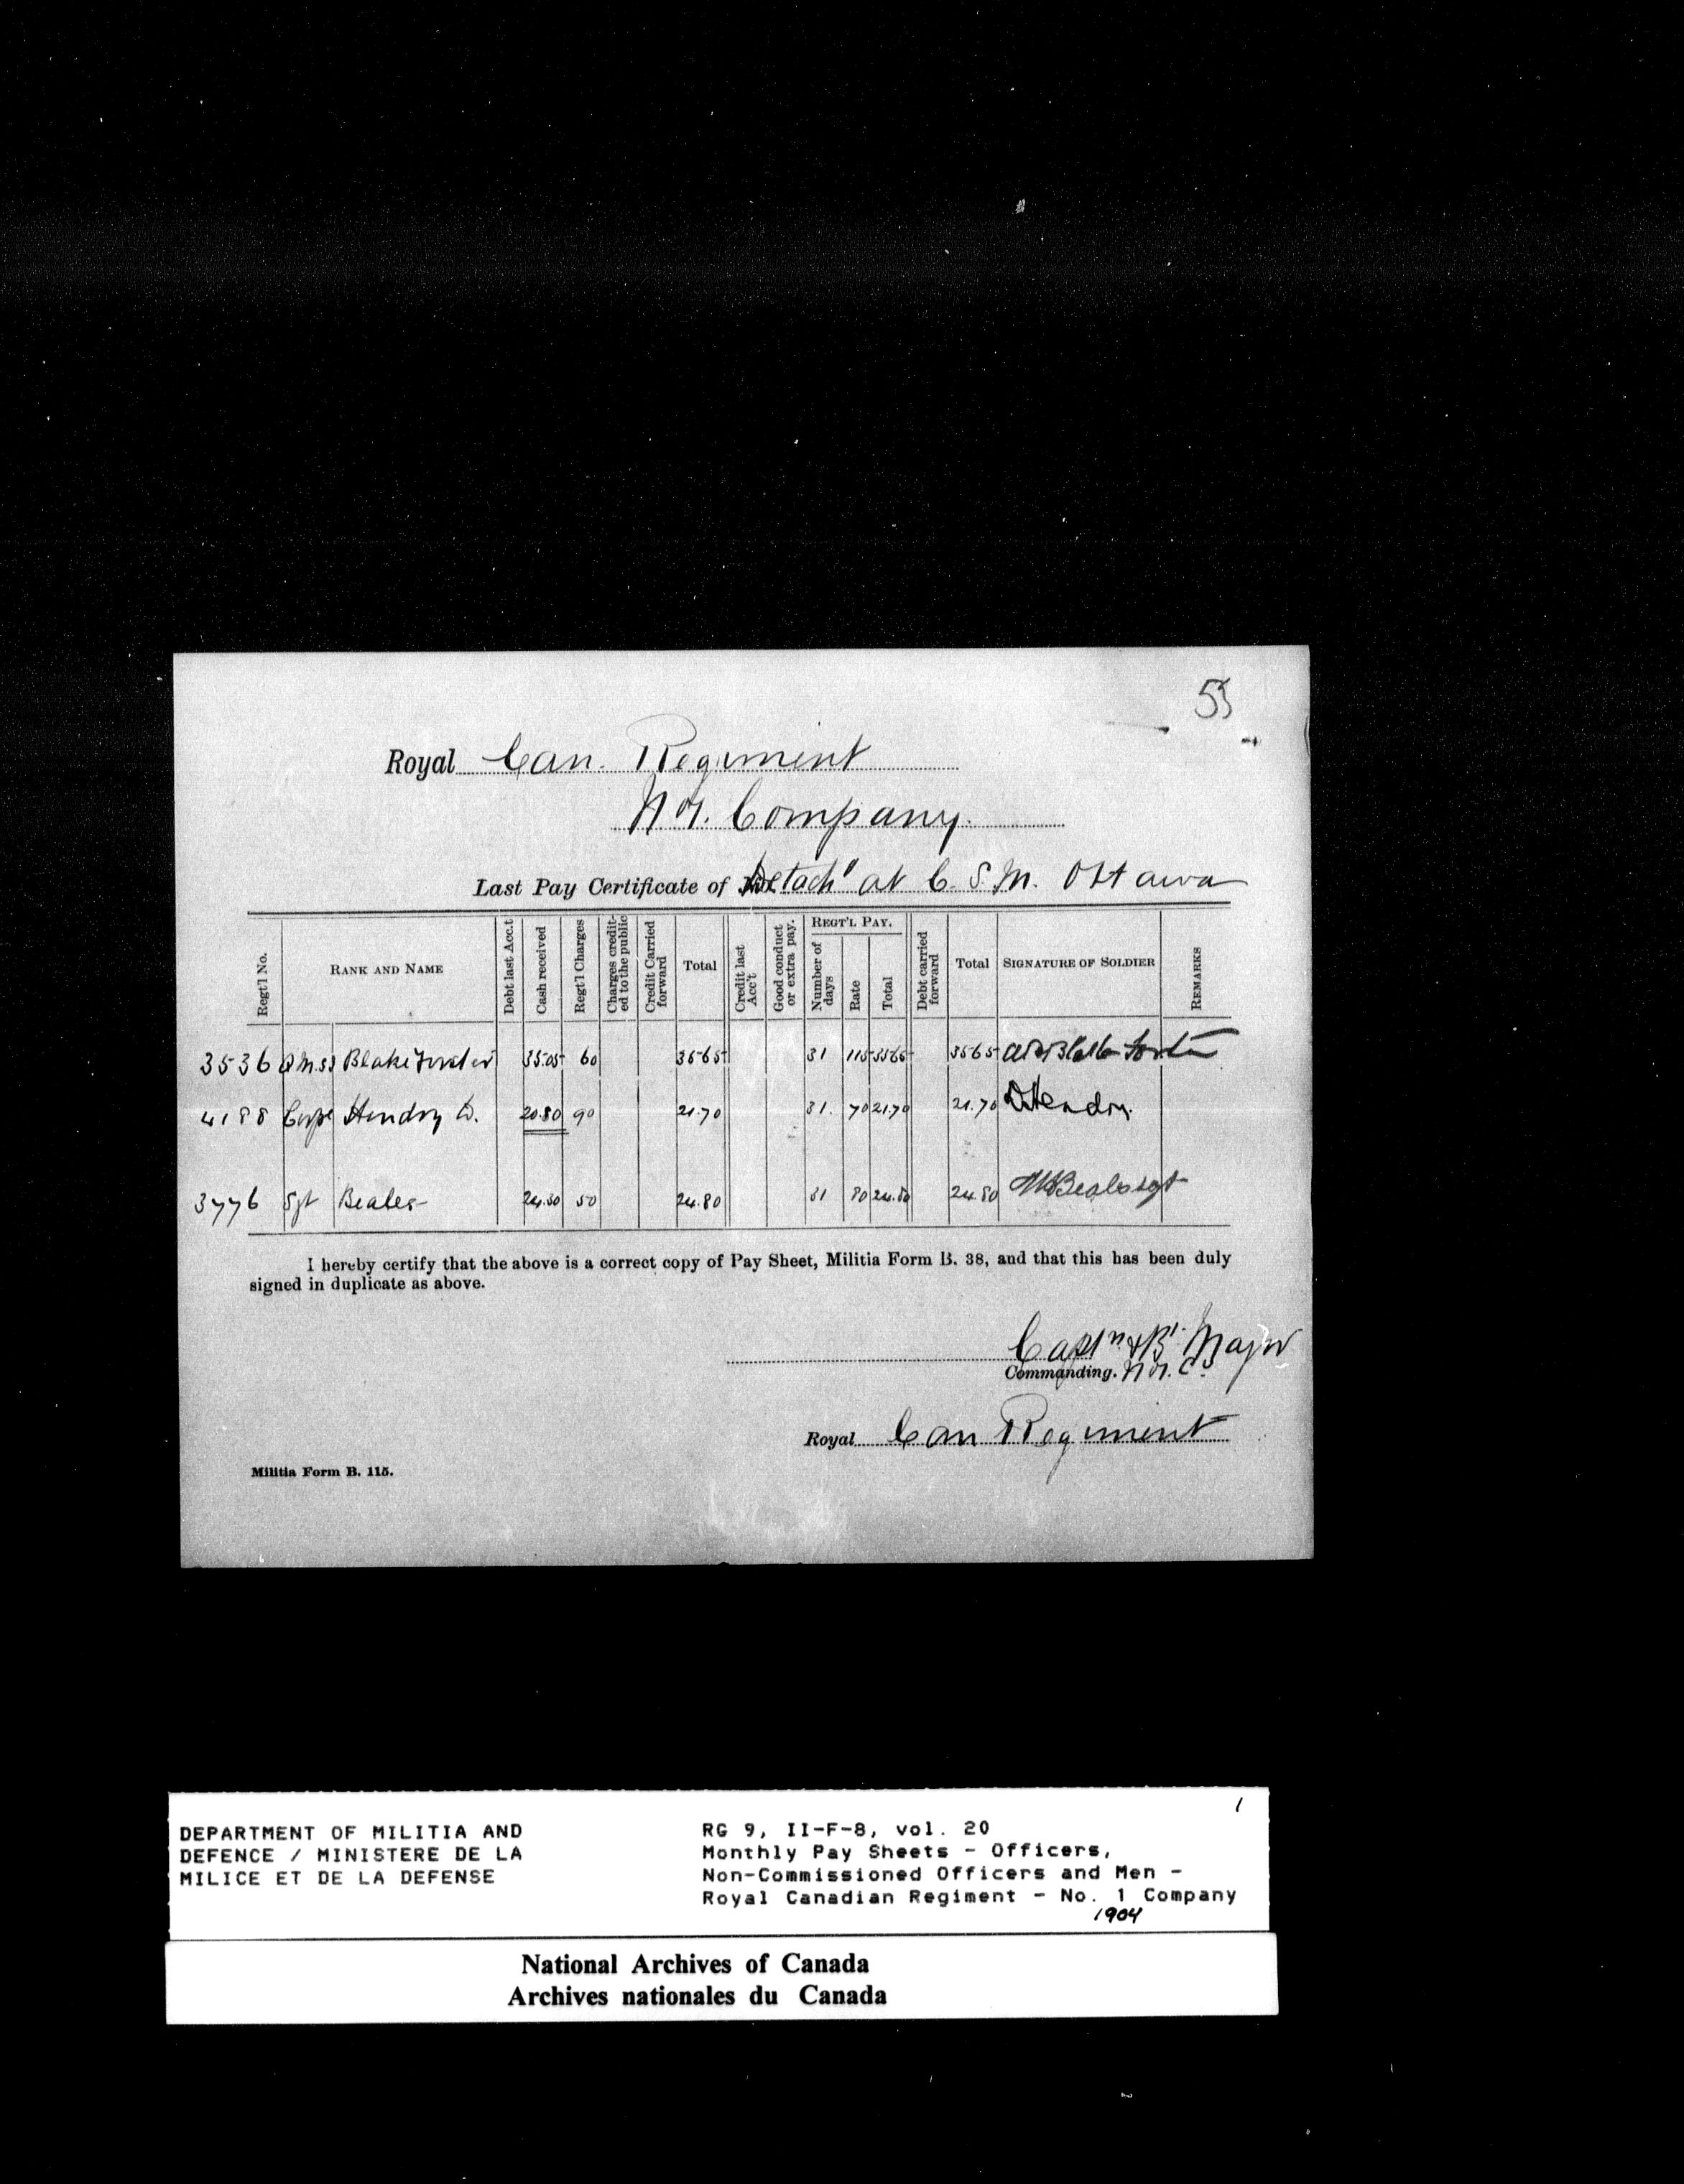 53
Royal Can. Regiment
No 1. Company.
Last Pay Certificate of Detach" at C. S. M. Ottawa
Regt'l No.
RANK AND NAME
Debt last Acc.t
Cash received
Regt'l Charges
Charges credit-ed to the public
Credit Carried forward
Total
Credit last Acc't
Good conduct or extra pay.
REGT'L PAY.
Number of days
Rate
Total
Debt carried forward
Total
SIGNATURE OF SOLDIER
REMARKS
3536 Blake Forster 35.05 60 35 65 31 115 35 65 35 65 Forster
4188 Corpl Hendry D. 20.80 90 21.70 31. 70 21.70 21.70 D Hendry.
3776 Sgt Beales 24.30 50 24.80 31 80 24.80 24.80 Beales Sgt
I hereby certify that the above is a correct copy of Pay Sheet, Militia Form B. 38, and that this has been duly
signed in duplicate as above.
Captn & Bt. Major
Commanding. No 1. Co
Royal Can Regiment
Militia Form B. 115.
1
DEPARTMENT OF MILITIA AND
DEFENCE / MINISTERE DE LA
MILICE ET DE LA DEFENSE
RG 9, II-F-8, vol. 20
Monthly Pay Sheets - Officers,
Non-Commissioned Officers and Men -
Royal Canadian Regiment - No. 1 Company
1904
National Archives of Canada
Archives nationales du Canada